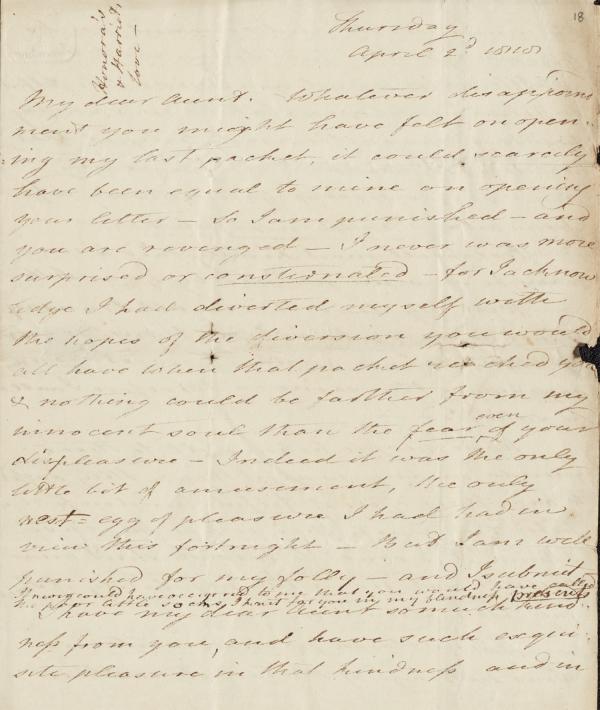 18
Honora's
& Harriet's
love —
Thursday
April 2d 1818
My dear Aunt. Whatever disappoint
ment you might have felt on open-
ing my last packet, it could scarcely
have been equal to mine on opening
your letter — So I am punished — and
you are revenged — I never was more
surprised or consternated — for I acknow
ledge I had diverted myself with
the hopes of the diversion you would
all have when that packet reached you
& nothing could be farther from my
innocent soul than the fear even of your
displeasure — Indeed it was the only
little bit of amusement, the only
nest-egg of pleasure I had had in
view this fortnight — But I am well
punished for my folly — and I submit —
It never could have occurred to my that you would have called
the poor little socks I knit for you in my blindness
I have my dear Aunt so much kind-
ness from you, and have such exqui-
site pleasure in that kindness and in